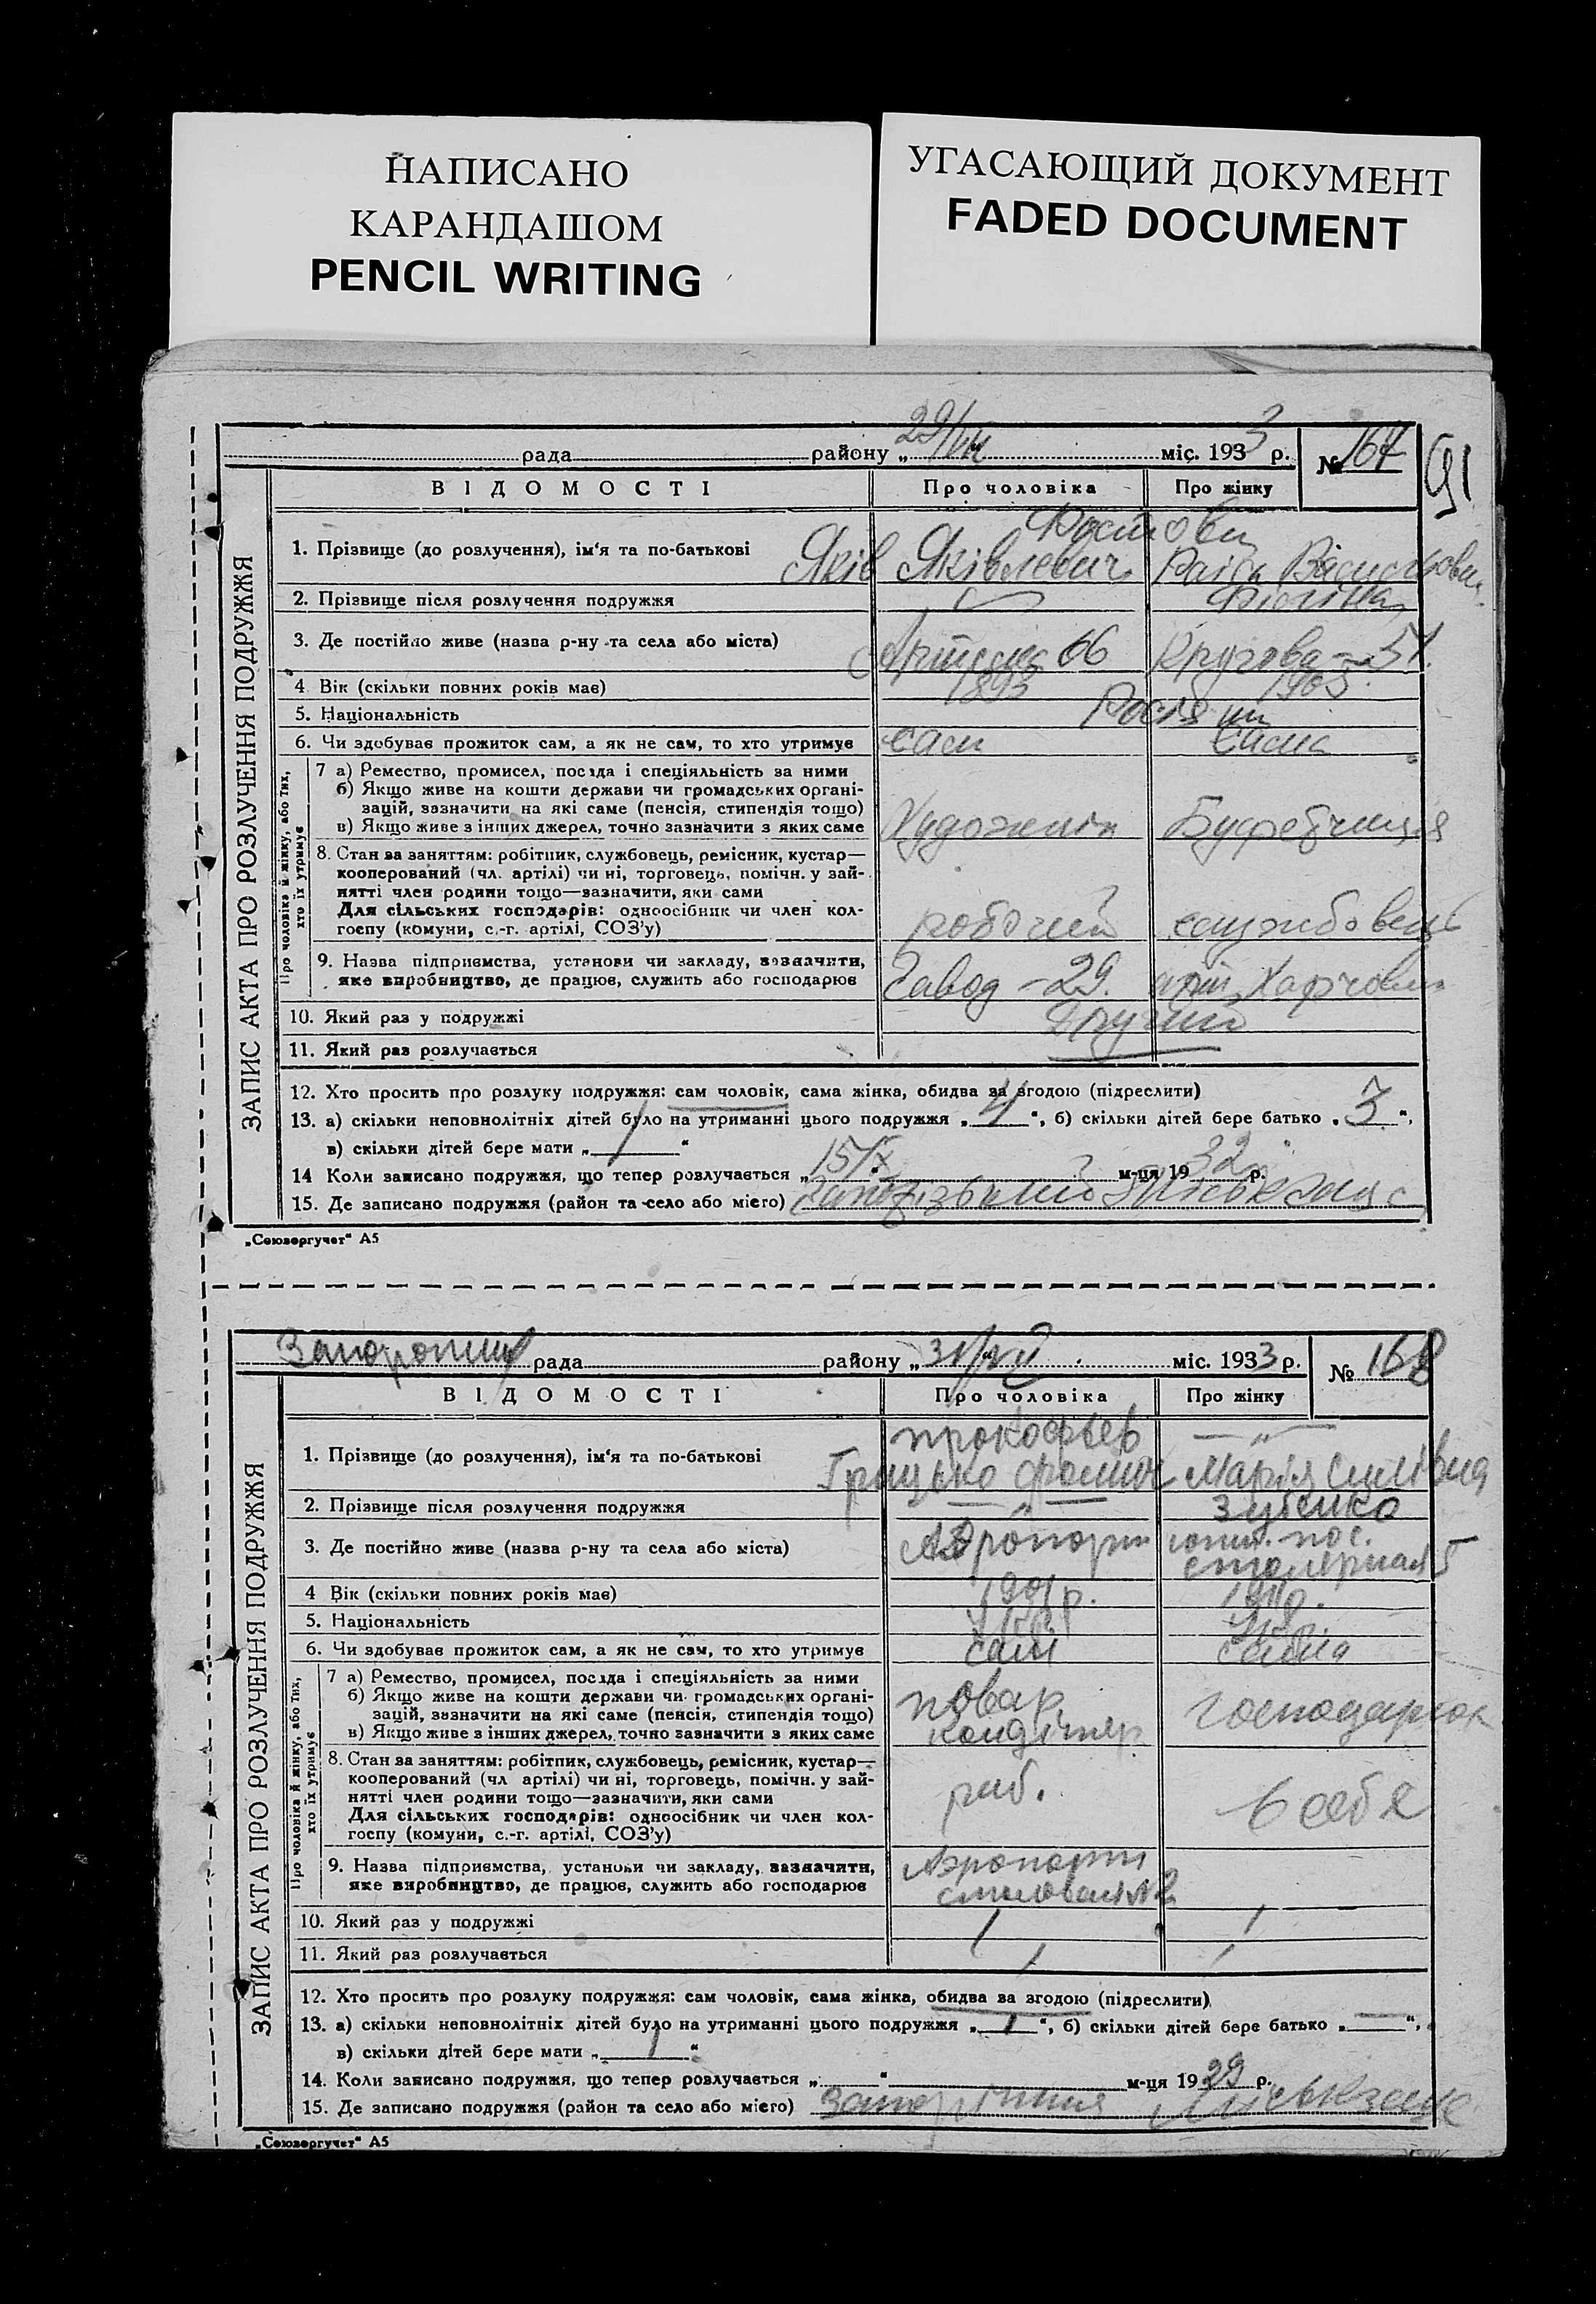 НАПИСАНО
КАРАНДАШОМ
PENCIL WRITING
УГАСАЮЩИЙ ДОКУМЕНТ
FADED DOCUMENT
91
рада району „29/VII“ міс. 1933 р. № 167
ВІДОМОСТІ Про чоловіка Про жінку
ЗАПИС АКТА ПРО РОЗЛУЧЕННЯ ПОДРУЖЖЯ
1. Прізвище (до розлучення), ім'я та по-батькові Яків Яківлевич Раїса
2. Прізвище після розлучення подружжя
3. Де постійно живе (назва р-ну та села або міста) 66 51.
4 Вік (скільки повних років має) 1893 1905.
5. Національність Росіяни
6. Чи здобуває прожиток сам, а як не сам, то хто утримує сам сама
Про чоловіка й жінку, або тих, хто їх утримує
7 а) Ремество, промисел, посада і спеціяльність за ними
б) Якщо живе на кошти держави чи громадських органі-
зацій, зазначити на які саме (пенсія, стипендія тощо)
в) Якщо живе з інших джерел, точно зазначити з яких саме Художнік Буфетчиця
8. Стан за заняттям: робітник, службовець, ремісник, кустар—
кооперований (чл. артілі) чи ні, торговець, помічн. у зай-
нятті член родини тощо—зазначити, яки сами
Для сільських господарів: одноосібник чи член кол-
госпу (комуни, с.-г. артілі, СОЗ'у) робочий службовець
9. Назва підприємства, установи чи закладу, зазначити,
яке виробництво, де працює, служить або господарює Завод – 29.
10. Який раз у подружжі Другий
11. Який раз розлучається
12. Хто просить про розлуку подружжя: сам чоловік, сама жінка, обидва за згодою (підреслити)
13. а) скільки неповнолітніх дітей було на утриманні цього подружжя „4“, б) скільки дітей бере батько „3“,
в) скільки дітей бере мати „1“
14 Коли записано подружжя, що тепер розлучається „15/X“ м-ця 1932 р.
15. Де записано подружжя (район та село або місго) Запорізький міськзагс
„Союзоргучет“ А5
рада району „31/VII“ міс. 1933 р. № 168
ВІДОМОСТІ Про чоловіка Про жінку
ЗАПИС АКТА ПРО РОЗЛУЧЕННЯ ПОДРУЖЖЯ
прокофьев — „ —
1. Прізвище (до розлучення), ім'я та по-батькові Грицько Фомич Марія
2. Прізвище після розлучення подружжя — „ — Зубенко
3. Де постійно живе (назва р-ну та села або міста) Аэропорт пос.
4 Вік (скільки повних років має) 1901 р. 1911 р.
5. Національність Укр. Укр.
6. Чи здобуває прожиток сам, а як не сам, то хто утримує сам
Про чоловіка й жінку, або тих, хто їх утримує
7 а) Ремество, промисел, посада і спеціяльність за ними
б) Якщо живе на кошти держави чи громадських органі-
зацій, зазначити на які саме (пенсія, стипендія тощо) повар
в) Якщо живе з інших джерел, точно зазначити з яких саме кондітер
8. Стан за заняттям: робітник, службовець, ремісник, кустар—
кооперований (чл артілі) чи ні, торговець, помічн. у зай-
нятті член родини тощо—зазначити, яки сами роб. в себе
Для сільських господарів: одноосібник чи член кол-
госпу (комуни, с.-г. артілі, СОЗ'у)
9. Назва підприємства, установи чи закладу, зазначити, Аэропорт
яке виробництво, де працює, служить або господарює столовая №2
10. Який раз у подружжі 1 1
11. Який раз розлучається 1 1
12. Хто просить про розлуку подружжя: сам чоловік, сама жінка, обидва за згодою (підреслити)
13. а) скільки неповнолітніх дітей було на утриманні цього подружжя „1“, б) скільки дітей бере батько „—“,
в) скільки дітей бере мати „1“
14. Коли записано подружжя, що тепер розлучається „ “ м-ця 1929 р.
15. Де записано подружжя (район та село або місго) міськзагс
„Союзоргучет“ А5